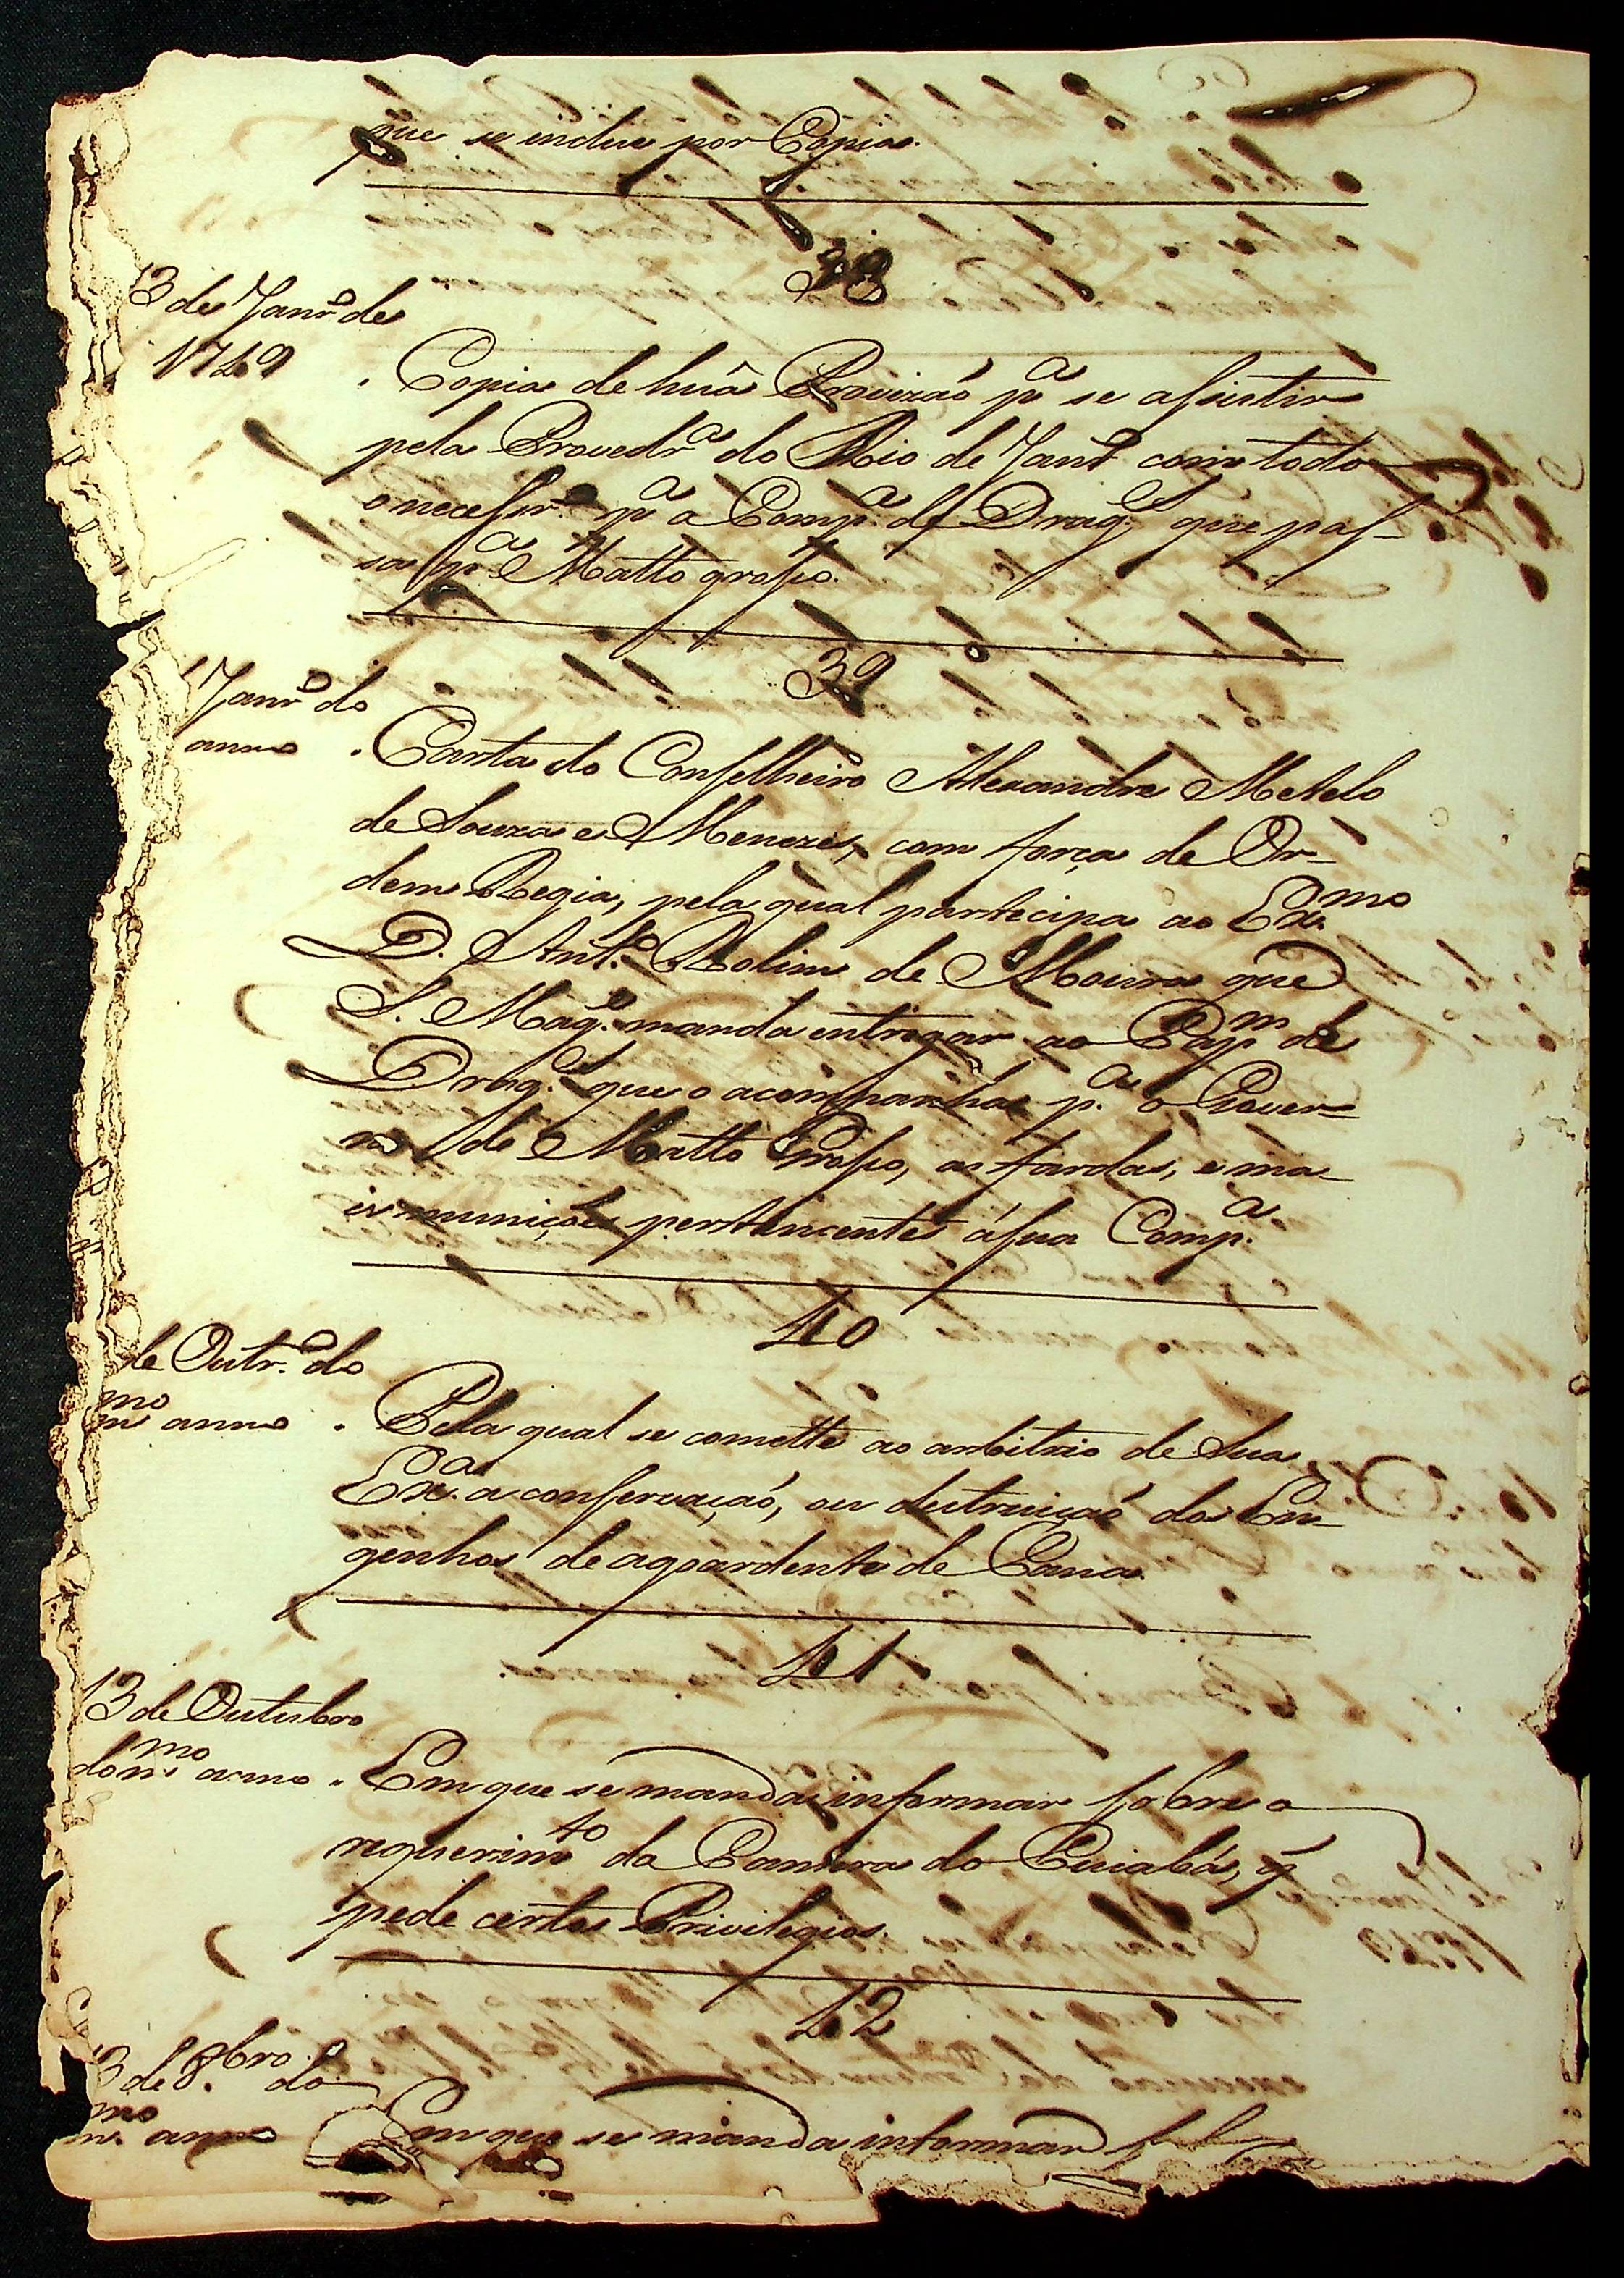 que se inclue por Copia.
38
13 de Janr.º de
1749
Copia de huã Provizaõ p.ª se assistir
pela Provedr.ª do Rio de Janr.º com todo
o necessr.º p.ª a Comp.ª de Drag.s que pas-
sa p.ª Matto grosso.
39
Janr.º do
anno
Carta do Conselheiro Alexandre Metelo
de Souza e Menezes, com força de Or-
dem Regia, pela qual partecipa ao Ex.mo
D. Ant.º Rolim de Moura que
S. Mag.e manda entregar ao Cap.m de
Drag.s que o acompanha p.ª o Gover-
no de Matto Grosso, as fardas, e ma-
is muniçoẽs pertencentes á sua Comp.ª
40
de Outr.º do
m.mo anno
Pela qual se comette ao arbitrio de Sua
Ex.ª a conservaçaõ, ou destruiçaõ dos En-
genhos de agoardente de Cana.
41
13 de Outubro
do m.mo anno
Em que se manda informar sobre o
requerim.to da Camera do Cuiabá, q̃
pede certos Privilegios.
42
3 de 8.bro do
m.mo anno
Em que se manda informar